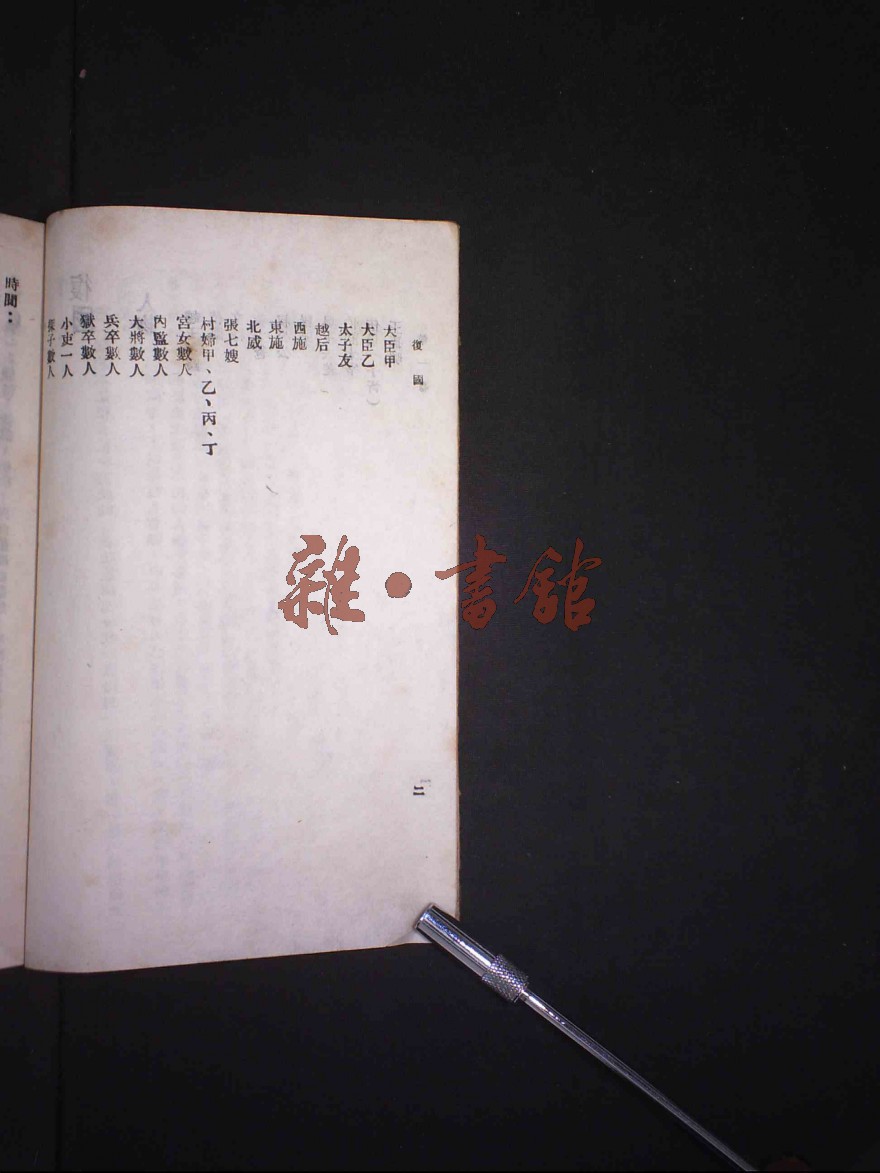 復國
大臣甲
大臣乙
太子友
越后
西施
東施
北威
張七嫂
村婦甲、乙、丙、丁
宮女數人
內監數人
大將數人
兵卒數人
獄卒數人
小吏一人
探子數人
二
時間：
雜·書館